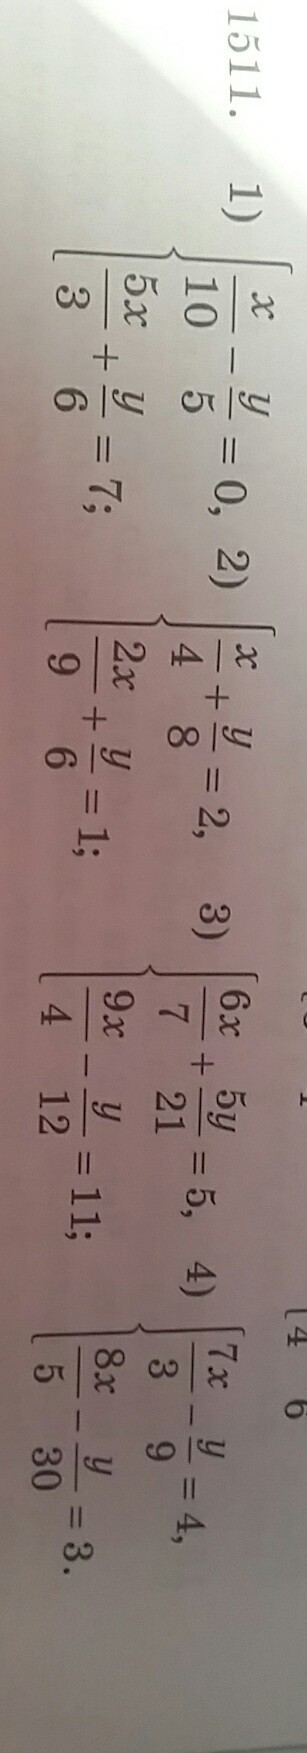 4 6
1511. 1) { x/10 − y/5 = 0, 5x/3 + y/6 = 7;
2) { x/4 + y/8 = 2, 2x/9 + y/6 = 1;
3) { 6x/7 + 5y/21 = 5, 9x/4 − y/12 = 11;
4) { 7x/3 − y/9 = 4, 8x/5 − y/30 = 3.